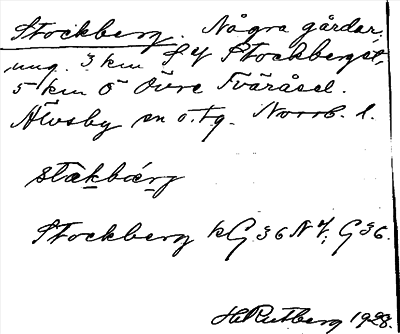 Stockberg. Några gårdar,
ung. 3 km S of Stockberget,
5 km Ö Övre Tväråsel.
Älvsby sn o. tg. Norrb. l.
stå̱kbæṟg
Stockberg kG 36 N V; G 36.
H Rutberg 1928.